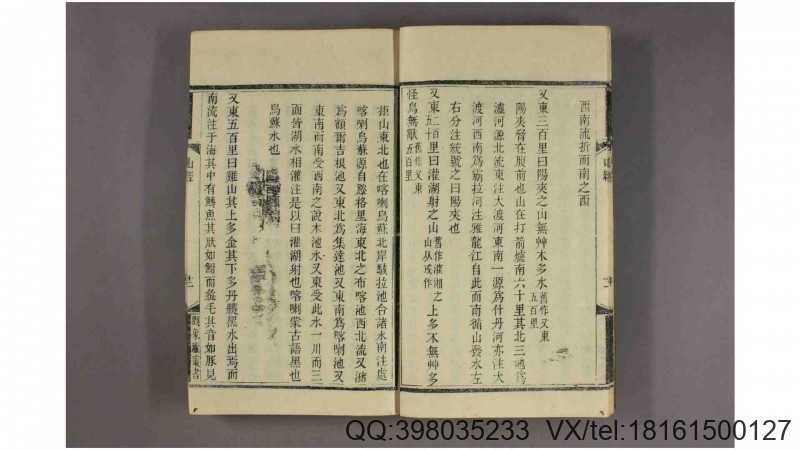 西南流折而南之酉
又東三百里曰陽夾之山無艸木多水舊作又東五百里
陽夾脊在腹前也山在打箭爐南六十里其北三池爲
瀘河源北流東注大渡河東南一源爲什丹河亦注大
渡河西南爲霸拉河注雅龍江自此而南循山發水左
右分注統號之曰陽夾也
又東二百五十里曰灌湖射之山舊作灌湘之山从或作上多木無艸多
怪鳥無獸舊作又東五百里
拒山東北也在喀喇烏蘇北岸駭拉池合諸水南注處
喀喇烏蘇源自滕格里海東北之布喀池西北流又瀦
爲額爾吉根池又東北爲集達池又東南爲喀喇池又
東南而南受西南之說木池水又東受此水一川而三
面皆湖水相灌注是以曰灌湖射也喀喇蒙古語黑也
烏蘇水也
又東五百里曰雞山其上多金其下多丹雘黑水出焉而
南流注于海其中有鱄魚其狀如鮒而彘毛其音如豚見
山經
QQ:398035233 VX/tel:18161500127